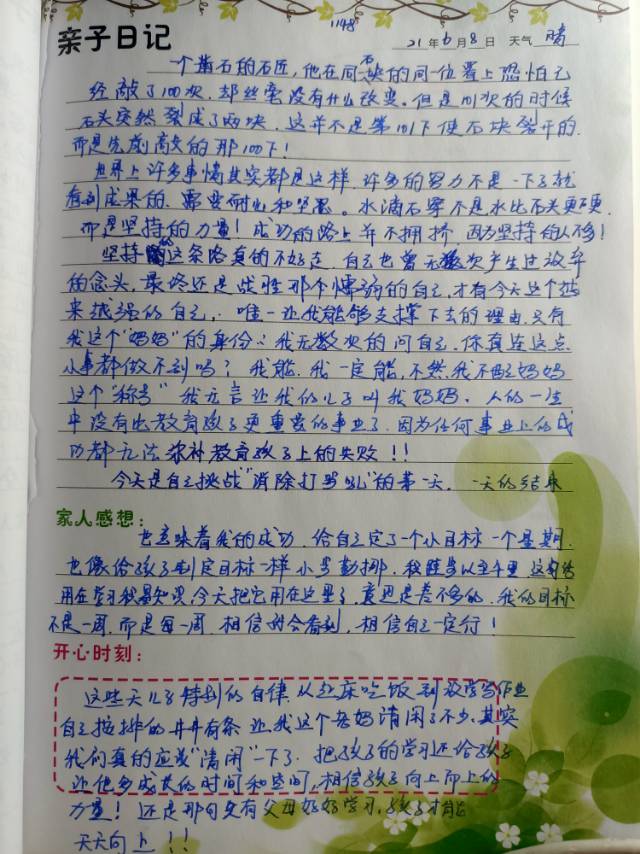 1148
亲子日记
21年6月8日 天气 晴
一个凿石的石匠，他在同一石块的同一位置上恐怕已
经敲了100次，却丝毫没有什么改变。但是101次的时候
石头突然裂成了两块，这并不是第101下使石块裂开的，
而是先前敲的那100下！
世界上许多事情其实都是这样，许多的努力不是一下子就
看到成果的，需要耐心和坚忍。水滴石穿不是水比石头更硬，
而是坚持的力量！成功的路上并不拥挤，因为坚持的人不多！
坚持的这条路真的不好走，自己也曾无数次产生过放弃
的念头，最终还是战胜那个懦弱的自己，才有今天这个越
来越强的自己，唯一让我能够支撑下去的理由，只有
我这个"妈妈"的身份：我无数次的问自己，你真连这点
小事都做不到吗？我能，我一定能，不然我不配妈妈
这个"称号"我无言让我的儿子叫我妈妈。人的一生
中没有比教育孩子更重要的事业了，因为任何事业上的成
功都无法弥补教育孩子上的失败！！
今天是自己挑战"消除打骂吼"的第一天，一天的结束
家人感想：
也意味着我的成功，给自己定了一个小目标一个星期，
也像给孩子制定目标一样小步勤挪，我跬步以至千里，这句话
用在学习我最知识，今天把它用在这里了，意思是差不多的，我的目标
不是一周，而是每一周，相信时会看到，相信自己一定行！
开心时刻：
这些天儿子特别的自律，从起床吃饭到放学写作业
自己按排的井井有条，让我这个老妈清闲了不少，其实
我们真的应该"清闲"一下了，把孩子的学习还给孩子
让他多成长的时间和空间，相信孩子向上而上的
力量！还是那句只有父母好好学习，孩子才能
天天向上！！